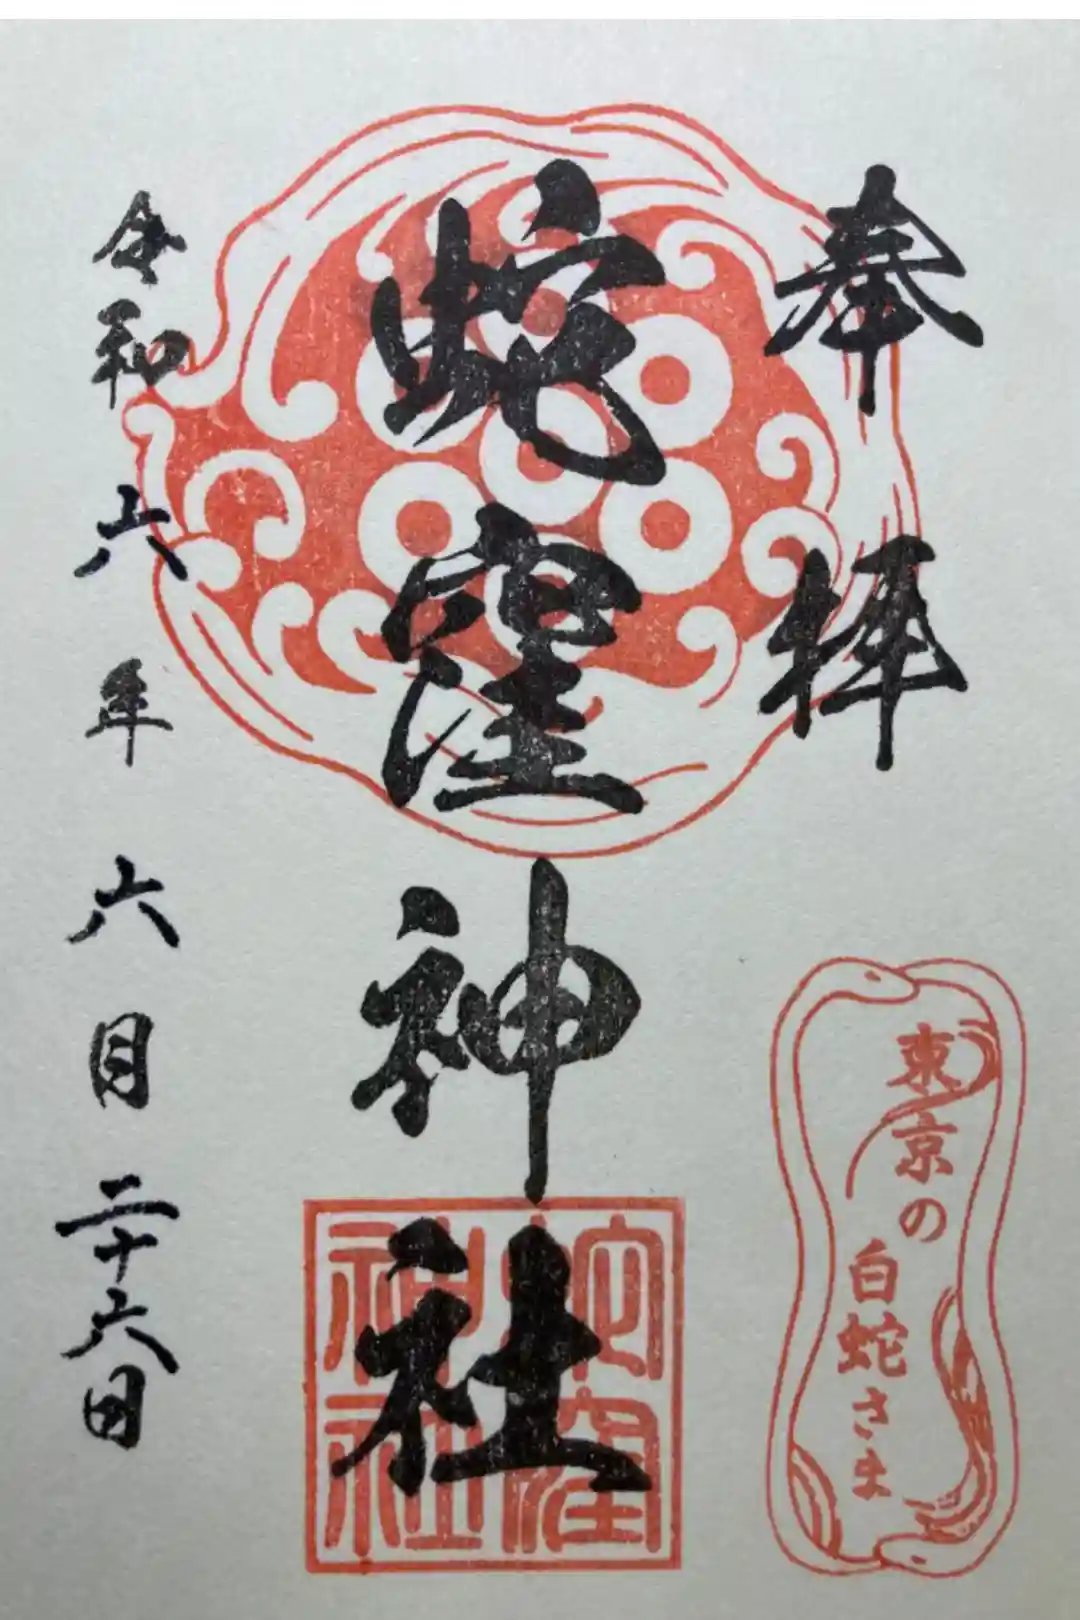 奉拝
蛇窪神社
蛇窪
神社
令和六年六月二十六日
東京の
白蛇さま